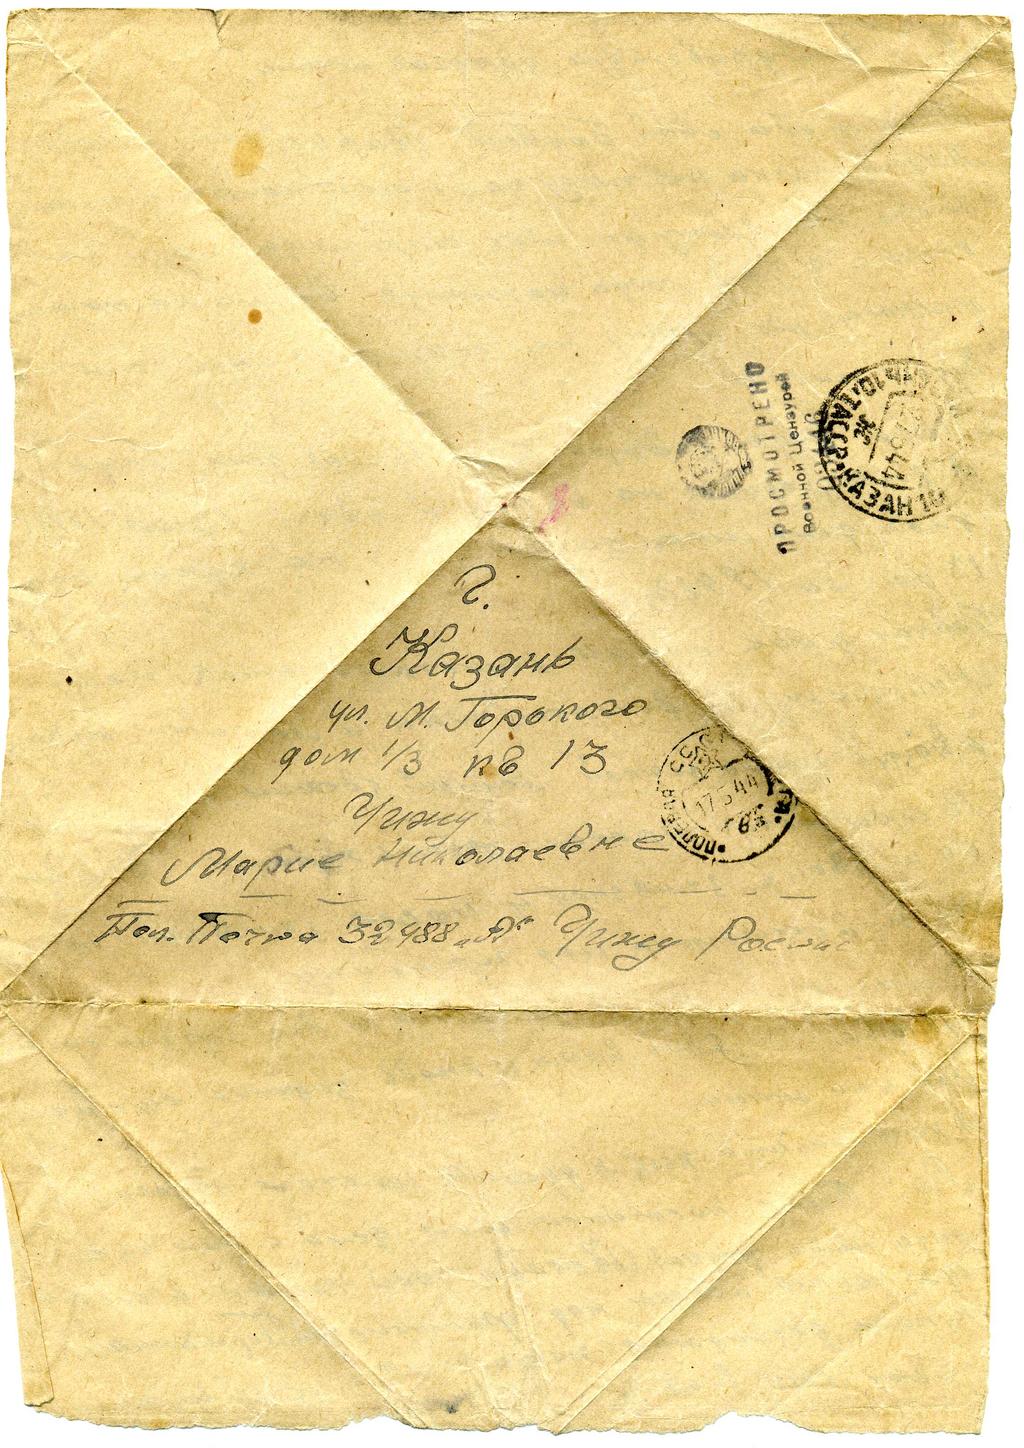 г.
Казань
ул. М. Горького
дом 1/3 кв 13
Чижу
Марие Николаевне
Пол. Почта 32488 „А“ Чижу
ПРОСМОТРЕНО
Военной Цензурой
ТАССР КАЗАНЬ 10
5 44
ПОЛЕВАЯ СССР
17 5 44